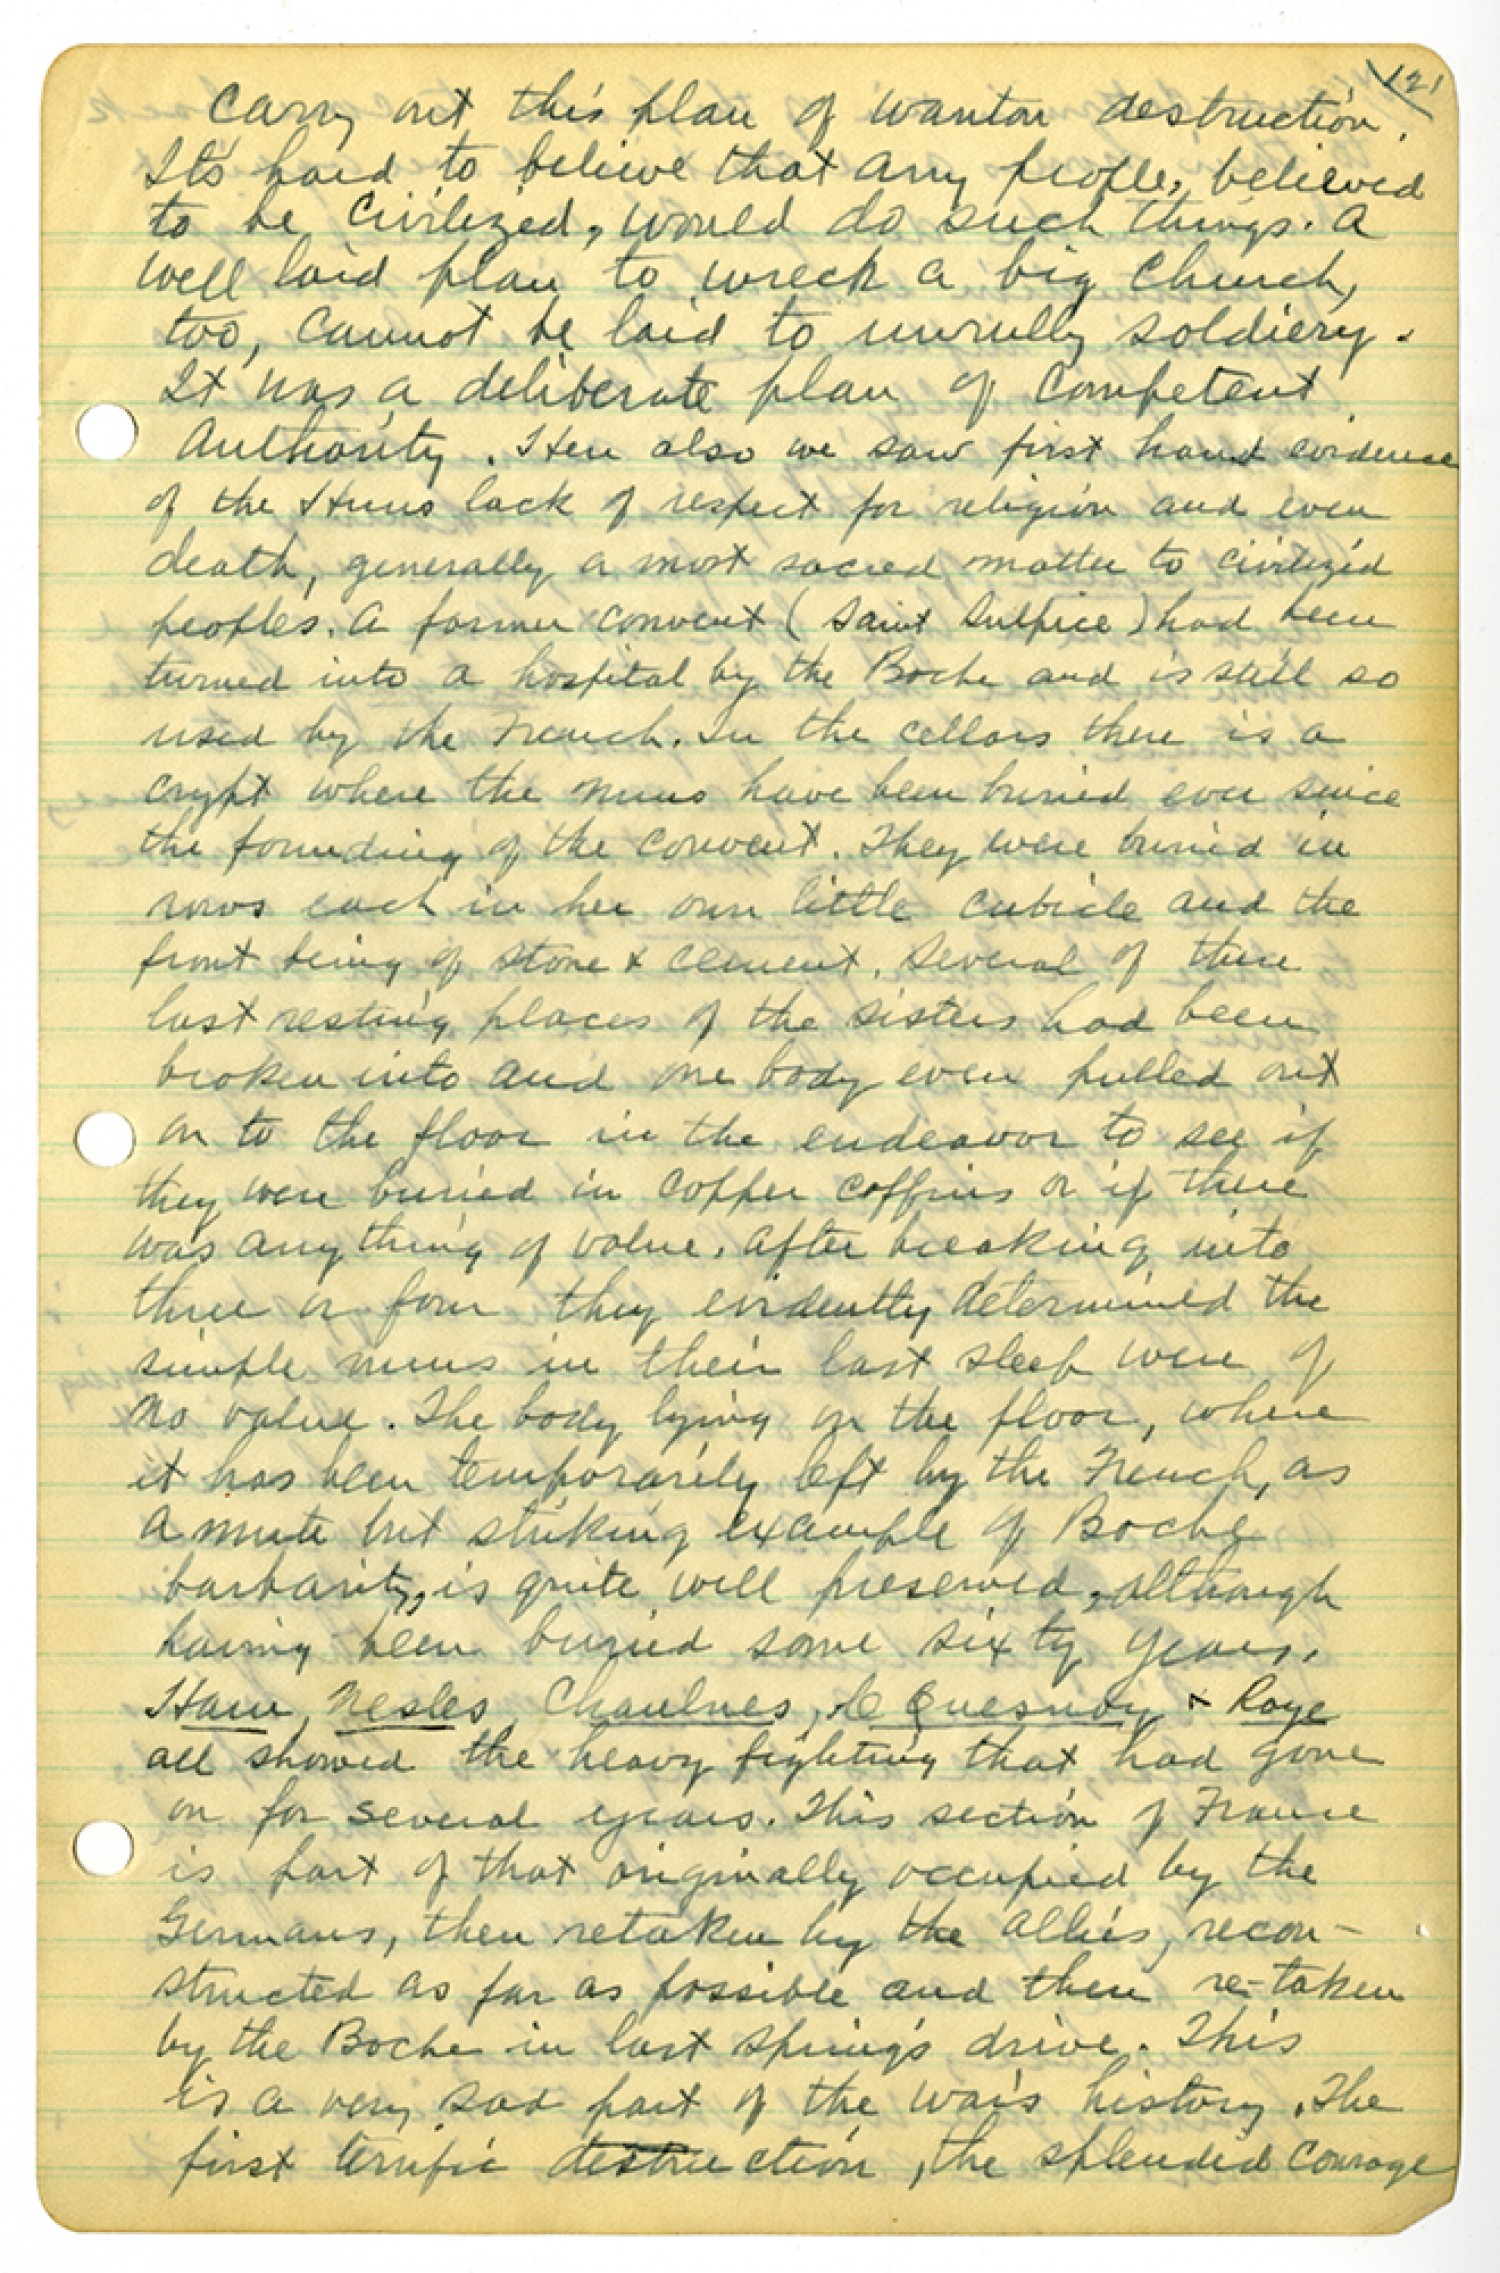 121
carry out this plan of wanton destruction.
Its hard to believe that any people, believed
to be civilized, would do such things. A
well laid plan to wreck a big church,
too, cannot be laid to unrully soldiery.
It was a deliberate plan of competent
authority. Here also we saw first hand evidence
of the Huns lack of respect for religion and even
death, generally a most sacred matter to civilized
peoples. A former convent (Saint Sulpice) had been
turned into a hospital by the Boche and is still so
used by the French. In the cellars there is a
crypt where the nuns have been buried ever since
the founding of the convent. They were buried in
rows each in her own little cubicle and the
front being of stone & cement. Several of these
last resting places of the sisters had been
broken into and one body even pulled out
on to the floor in the endeavor to see if
they were buried in copper coffins or if there
was anything of value. After breaking into
three or four they evidently determined the
simple nuns in their last sleep were of
no value. The body lying on the floor, where
it has been temporarily left by the French, as
a mute but striking example of Boche
barbarity, is quite well preserved, although
having been buried some sixty years.
Ham, Nesles, Chaulnes, le Quesnoy & Roye
all showed the heavy fighting that had gone
on for several years. This section of France
is part of that originally occupied by the
Germans, then retaken by the Allies, recon-
structed as far as possible and then re-taken
by the Boche in last spring's drive. This
is a very sad part of the war's history. The
first terrific destruction, the splendid courage